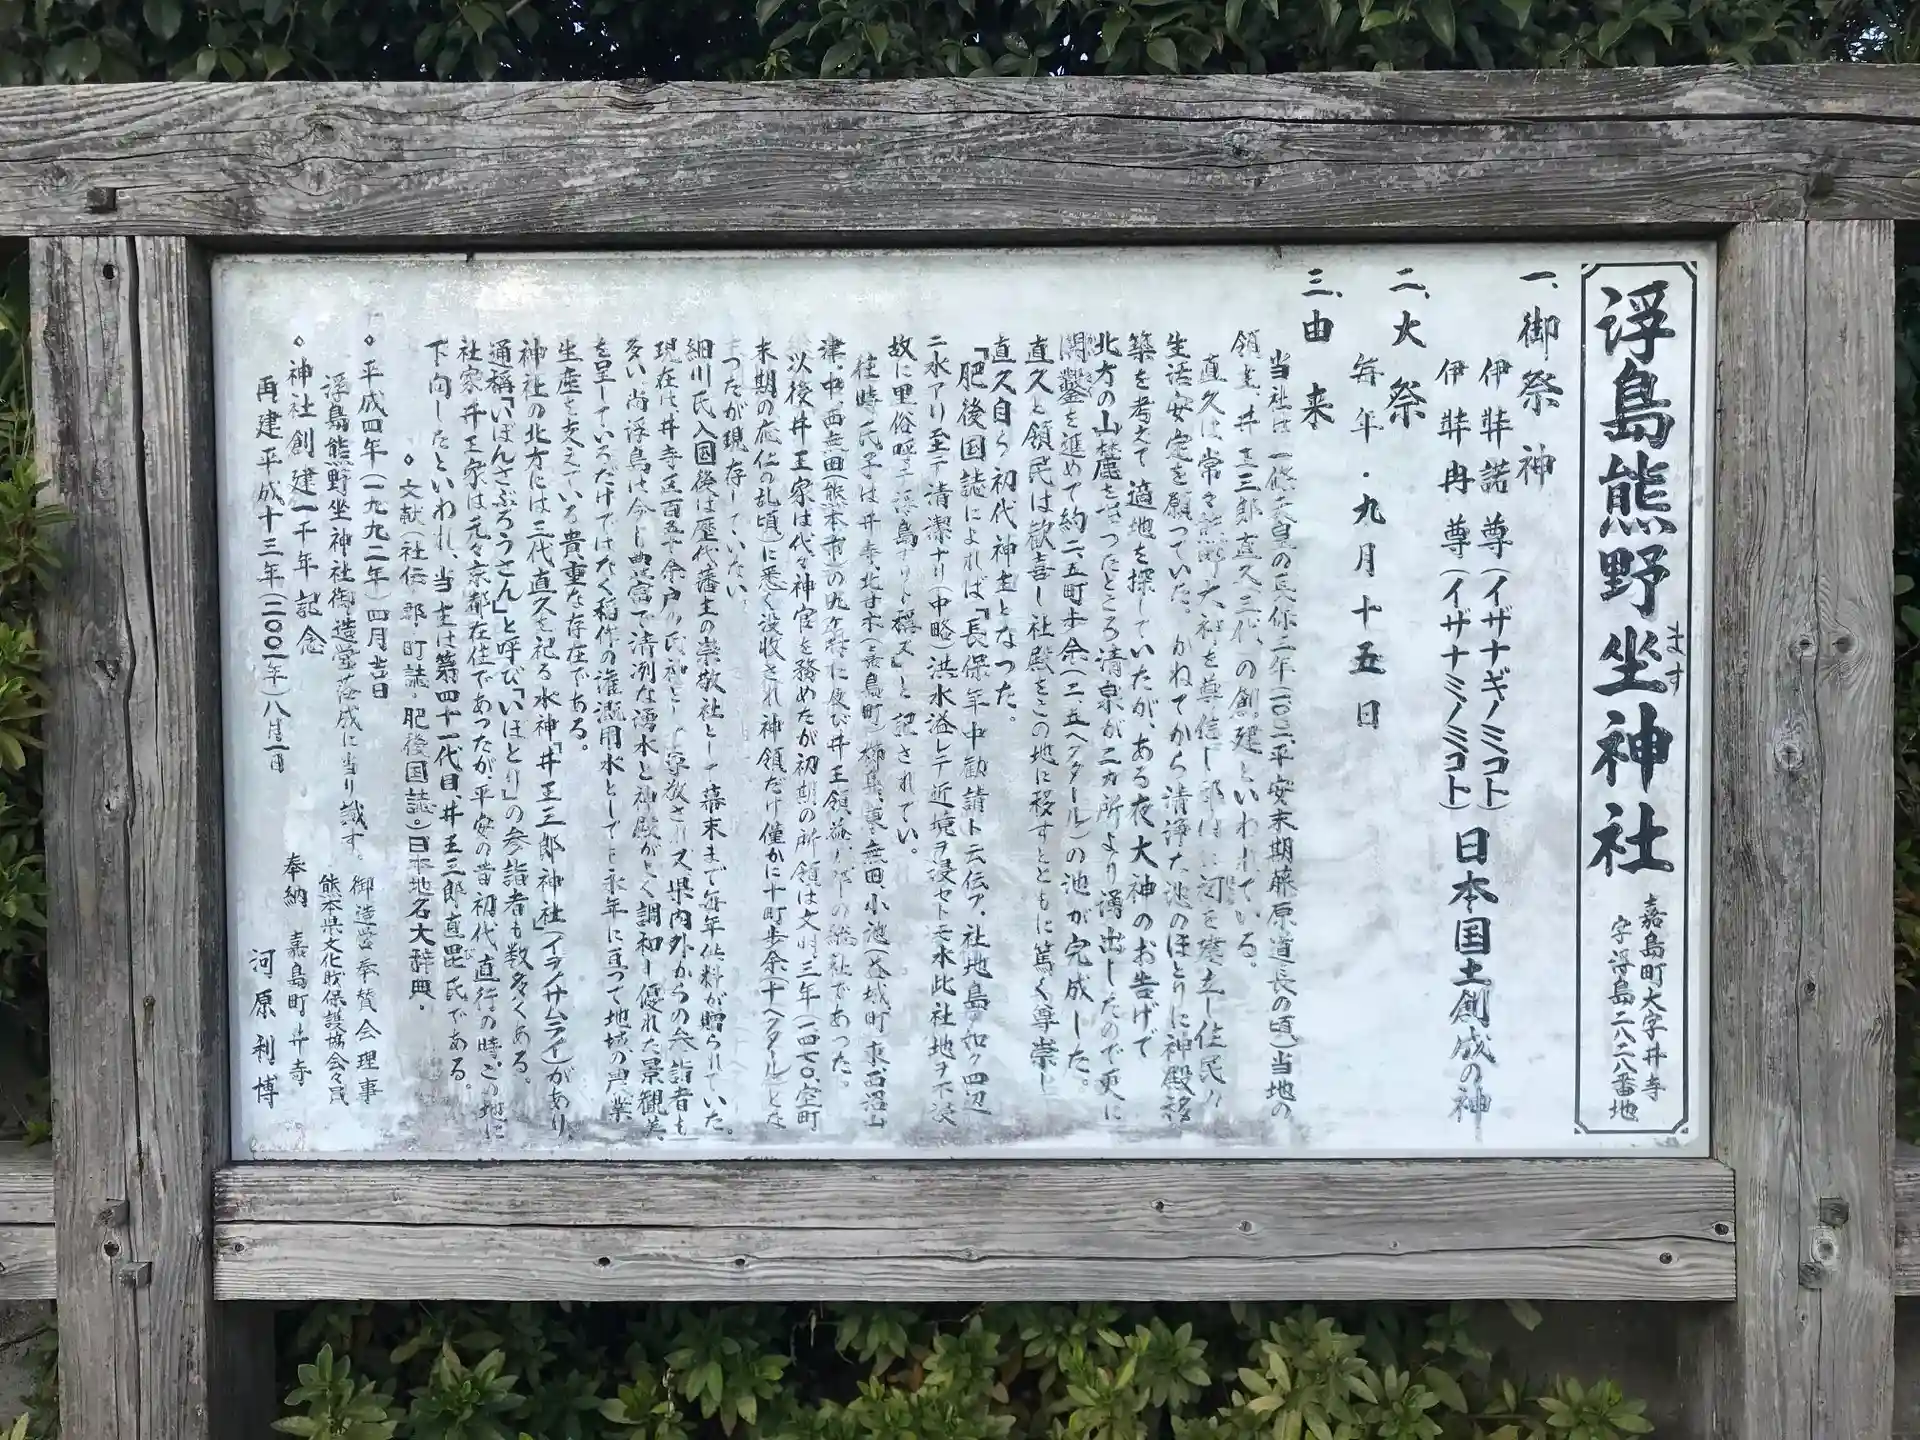 浮島熊野坐神社
ます
嘉島町大字井寺
字浮島二八二八番地
一、御祭神
伊弉諾尊(イザナギノミコト)
伊弉冉尊(イザナミノミコト)
日本国土創成の神
二、大祭
毎年・九月十五日
三、由来
当社は一條天皇の長保三年(平安末期藤原道長の頃)当地の
領主、井王三郎直久三代、の創建といわれている。
直久は常々熊野大神を尊信し
生活安定を願っていた。かねてから清浄な池のほとりに神殿移
築を考えて適地を探していたが、ある夜大神のお告げで
北方の山麓をほったところ清泉が二カ所より湧出したので更に
開鑿を進めて約二、五町歩余(二、五ヘクタール)の池が完成した。
直久と領民は歓喜し社殿をこの地に移すとともに篤く尊崇し
直久自ら初代神主となった。
『肥後国誌によれば『長保年中勧請ト云伝フ、社地島ノ如ク四辺
ニ水アリ至テ清潔ナリ(中略)洪水溢レテ近境ヲ浸セトモ水此社地ヲ不浸
故に里俗呼テ浮島ナリト稱ス』と記されてい。
往時氏子は井寺、北甘木(嘉島町)櫛島、東無田、小池(益城町)東、西沼山
津、中、西無田(熊本市)の九ヶ村に及び井王領益城郡の総社であった。
以後井王家は代々神官を務めたが初期の所領は文明三年(一四七〇、室町
末期の応仁の乱頃)に悉く没収され神領だけ僅かに十町歩余(十ヘクタール)とな
ったが現存していない
細川氏入国後は歴代藩主の崇敬社として幕末まで毎年供料が贈られていた。
現在は井寺区百五十余戸の氏神として崇敬され又県内外からの参詣者も
多い、尚浮島は今し豊富で清冽な湧水と神殿がよく調和し優れた景観美
を呈しているだけではなく稲作の灌漑用水としても永年に亘って地域の農業
生産を支えている貴重な存在である。
神社の北方には三代直久を祀る水神「井王三郎神社」(イヲノサムライ)があり、
通稱「いぼんさぶろうさん」と呼び「いぼとり」の参詣者も数多くある。
社家井王家は元々京都在住であったが、平安の昔初代直行の時、この地に
下向したといわれ、当主は第四十一代目、井王三郎直毘氏である。
◇文献(社伝・郡、町誌・肥後国誌。)日本地名大辞典。
◇平成四年(一九九二年)四月吉日
浮島熊野坐神社御造営落成に当り識す。
御造営奉賛会理事
熊本県文化財保護協会々員
◇神社創建一千年記念
再建平成十三年(二〇〇一年)八月一日
奉納 嘉島町井寺
河原利博